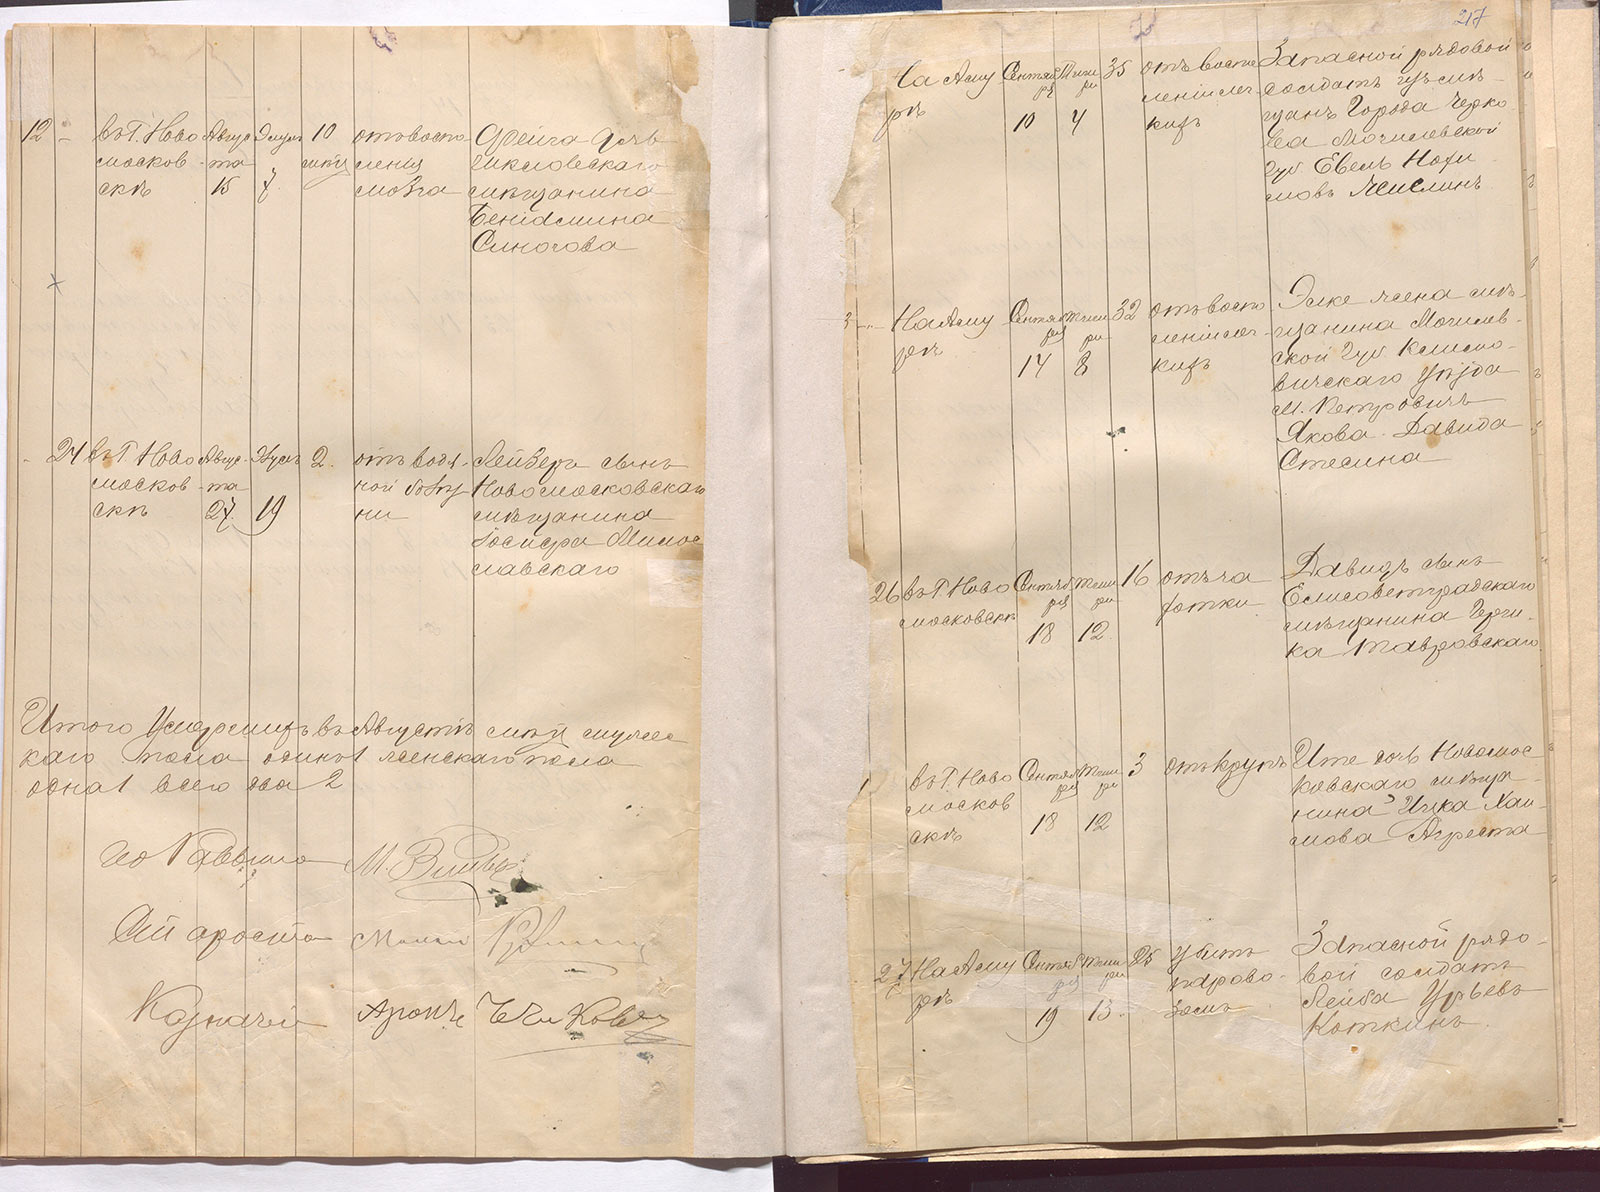 12 - въ Г. Ново
москов
скѣ
Авгус
та
15
Элулъ
7
10
отъ воспа
ленія
мозга
Фейга дочь
Шкловскаго
мѣщанина
Беніамина
Синочова
24 въ Г. Ново
москов
скѣ
Авгус
та
27
Элулъ
19
2
отъ водя
ной болѣз
ни
Лейзеръ сынъ
Новомосковскаго
мѣщанина
Іосифа Милос
лавскаго
Итого Умершихъ въ Августѣ
каго пола одинъ 1 женскаго пола
одна 1 всего два 2
М.
Староста
Казначей
217
На Аму
рѣ
Сентяб
ря
10
Тиш
ри
4
35
отъ воспа
леніи лег
кихъ
Запасной рядовой
солдатъ изъ мѣ
щанъ Города Черко
ва Могилевской
Губ Евель Нохи
мовъ
На Аму
рѣ
Сентяб
ря
14
Тиш
ри
8
32
отъ воспа
леніи лег
кихъ
Эльке жена мѣ
щанина Могилев
ской Губ Климо
вичскаго Уѣзда
м. Петровичъ
Якова Давида
Стесина
26 въ Г Ново
московскѣ
Сентяб
ря
18
Тиш
ри
12
16
отъ ча
хотки
Давидъ сынъ
Елисоветградскаго
мѣщанина Герш
ка Тавровскаго
въ Г. Ново
москов
скѣ
Сентяб
ря
18
Тиш
ри
12
3
отъ крупъ
Ите дочь Новомос
ковскаго мѣща
нина Ицка Хаи
мова Агреста
27 На Аму
рѣ
Сентяб
ря
19
Тиш
ри
13
25
убитъ
парово
зомъ
Запасной рядо
вой солдатъ
Лейба Урьевъ
Коткинъ